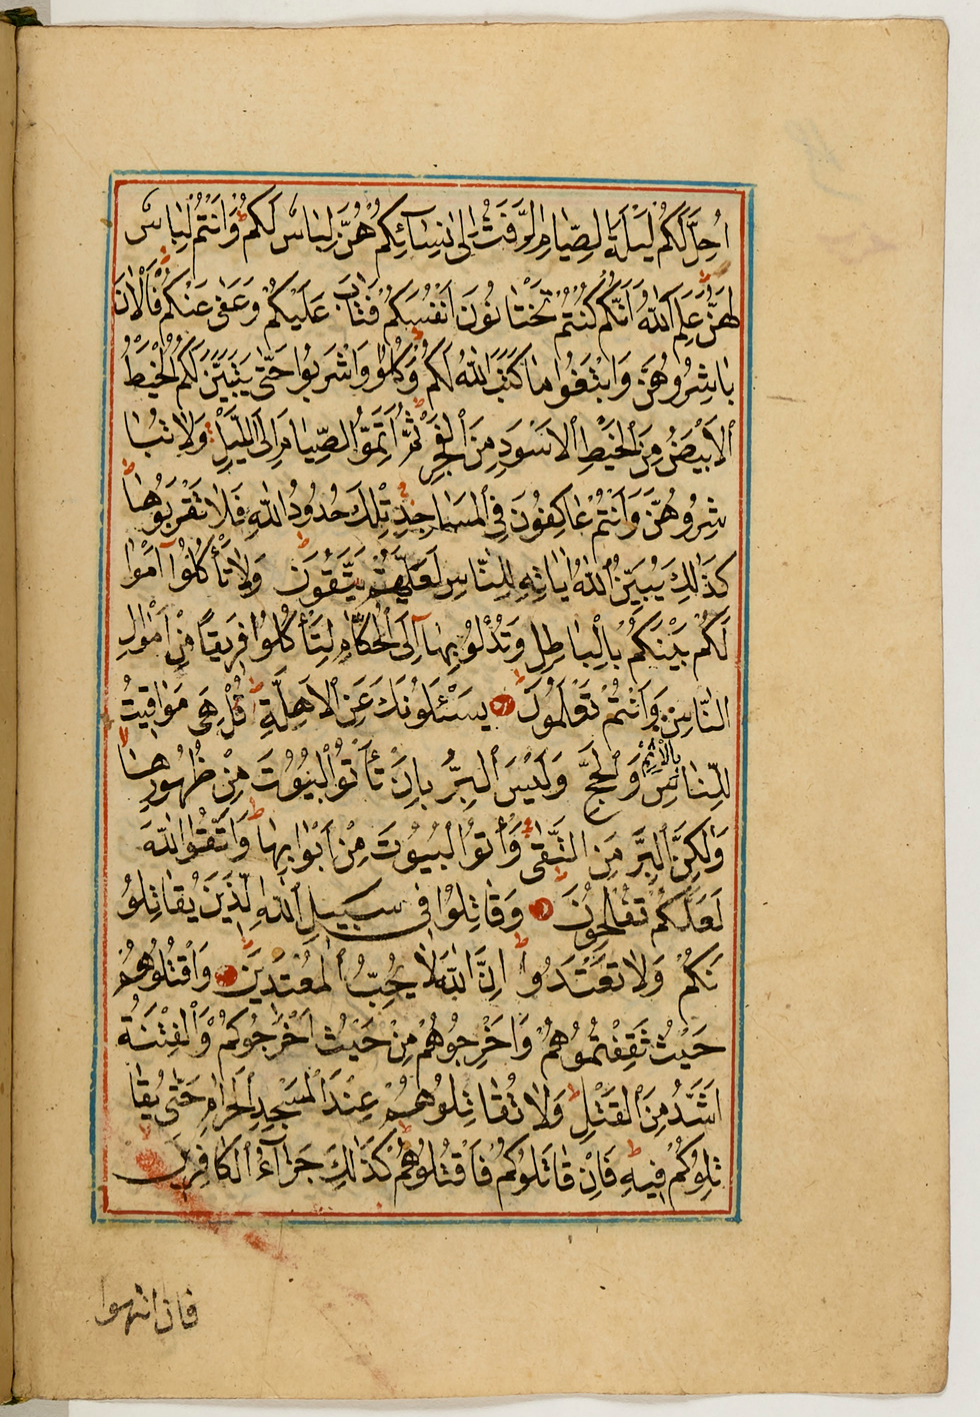 اُحِلَّ لَكُمْ لَيْلَةَ الصِّيَامِ الرَّفَثُ اِلٰى نِسَآئِكُمْ هُنَّ لِبَاسٌ لَكُمْ وَاَنْتُمْ لِبَاسٌ
لَهُنَّ عَلِمَ اللّٰهُ اَنَّكُمْ كُنْتُمْ تَخْتَانُونَ اَنْفُسَكُمْ فَتَابَ عَلَيْكُمْ وَعَفٰى عَنْكُمْ فَالْاٰنَ
بَاشِرُوهُنَّ وَابْتَغُوا مَا كَتَبَ اللّٰهُ لَكُمْ وَكُلُوا وَاشْرَبُوا حَتّٰى يَتَبَيَّنَ لَكُمُ الْخَيْطُ
الْاَبْيَضُ مِنَ الْخَيْطِ الْاَسْوَدِ مِنَ الْفَجْرِ ثُمَّ اَتِمُّوا الصِّيَامَ اِلَى الَّيْلِ وَلَا تُبَا
شِرُوهُنَّ وَاَنْتُمْ عَاكِفُونَ فِي الْمَسَاجِدِ تِلْكَ حُدُودُ اللّٰهِ فَلَا تَقْرَبُوهَا
كَذٰلِكَ يُبَيِّنُ اللّٰهُ اٰيَاتِهِ لِلنَّاسِ لَعَلَّهُمْ يَتَّقُونَ وَلَا تَأْكُلُوٓا اَمْوَا
لَكُمْ بَيْنَكُمْ بِالْبَاطِلِ وَتُدْلُوا بِهَآ اِلَى الْحُكَّامِ لِتَأْكُلُوا فَرِيقًا مِنْ اَمْوَالِ
النَّاسِ وَاَنْتُمْ تَعْلَمُونَ يَسْئَلُونَكَ عَنِ الْاَهِلَّةِ قُلْ هِيَ مَوَاقِيتُ
بِالْاِثْمِ
لِلنَّاسِ وَالْحَجِّ وَلَيْسَ الْبِرُّ بِاَنْ تَأْتُوا الْبُيُوتَ مِنْ ظُهُورِهَا
وَلٰكِنَّ الْبِرَّ مَنِ اتَّقٰى وَأْتُوا الْبُيُوتَ مِنْ اَبْوَابِهَا وَاتَّقُوا اللّٰهَ
لَعَلَّكُمْ تُفْلِحُونَ وَقَاتِلُوا فِي سَبِيلِ اللّٰهِ الَّذِينَ يُقَاتِلُو
نَكُمْ وَلَا تَعْتَدُوا اِنَّ اللّٰهَ لَا يُحِبُّ الْمُعْتَدِينَ وَاقْتُلُوهُمْ
حَيْثُ ثَقِفْتُمُوهُمْ وَاَخْرِجُوهُمْ مِنْ حَيْثُ اَخْرَجُوكُمْ وَالْفِتْنَةُ
اَشَدُّ مِنَ الْقَتْلِ وَلَا تُقَاتِلُوهُمْ عِنْدَ الْمَسْجِدِ الْحَرَامِ حَتّٰى يُقَا
تِلُوكُمْ فِيهِ فَاِنْ قَاتَلُوكُمْ فَاقْتُلُوهُمْ كَذٰلِكَ جَزَآءُ الْكَافِرِينَ
فان انتهوا